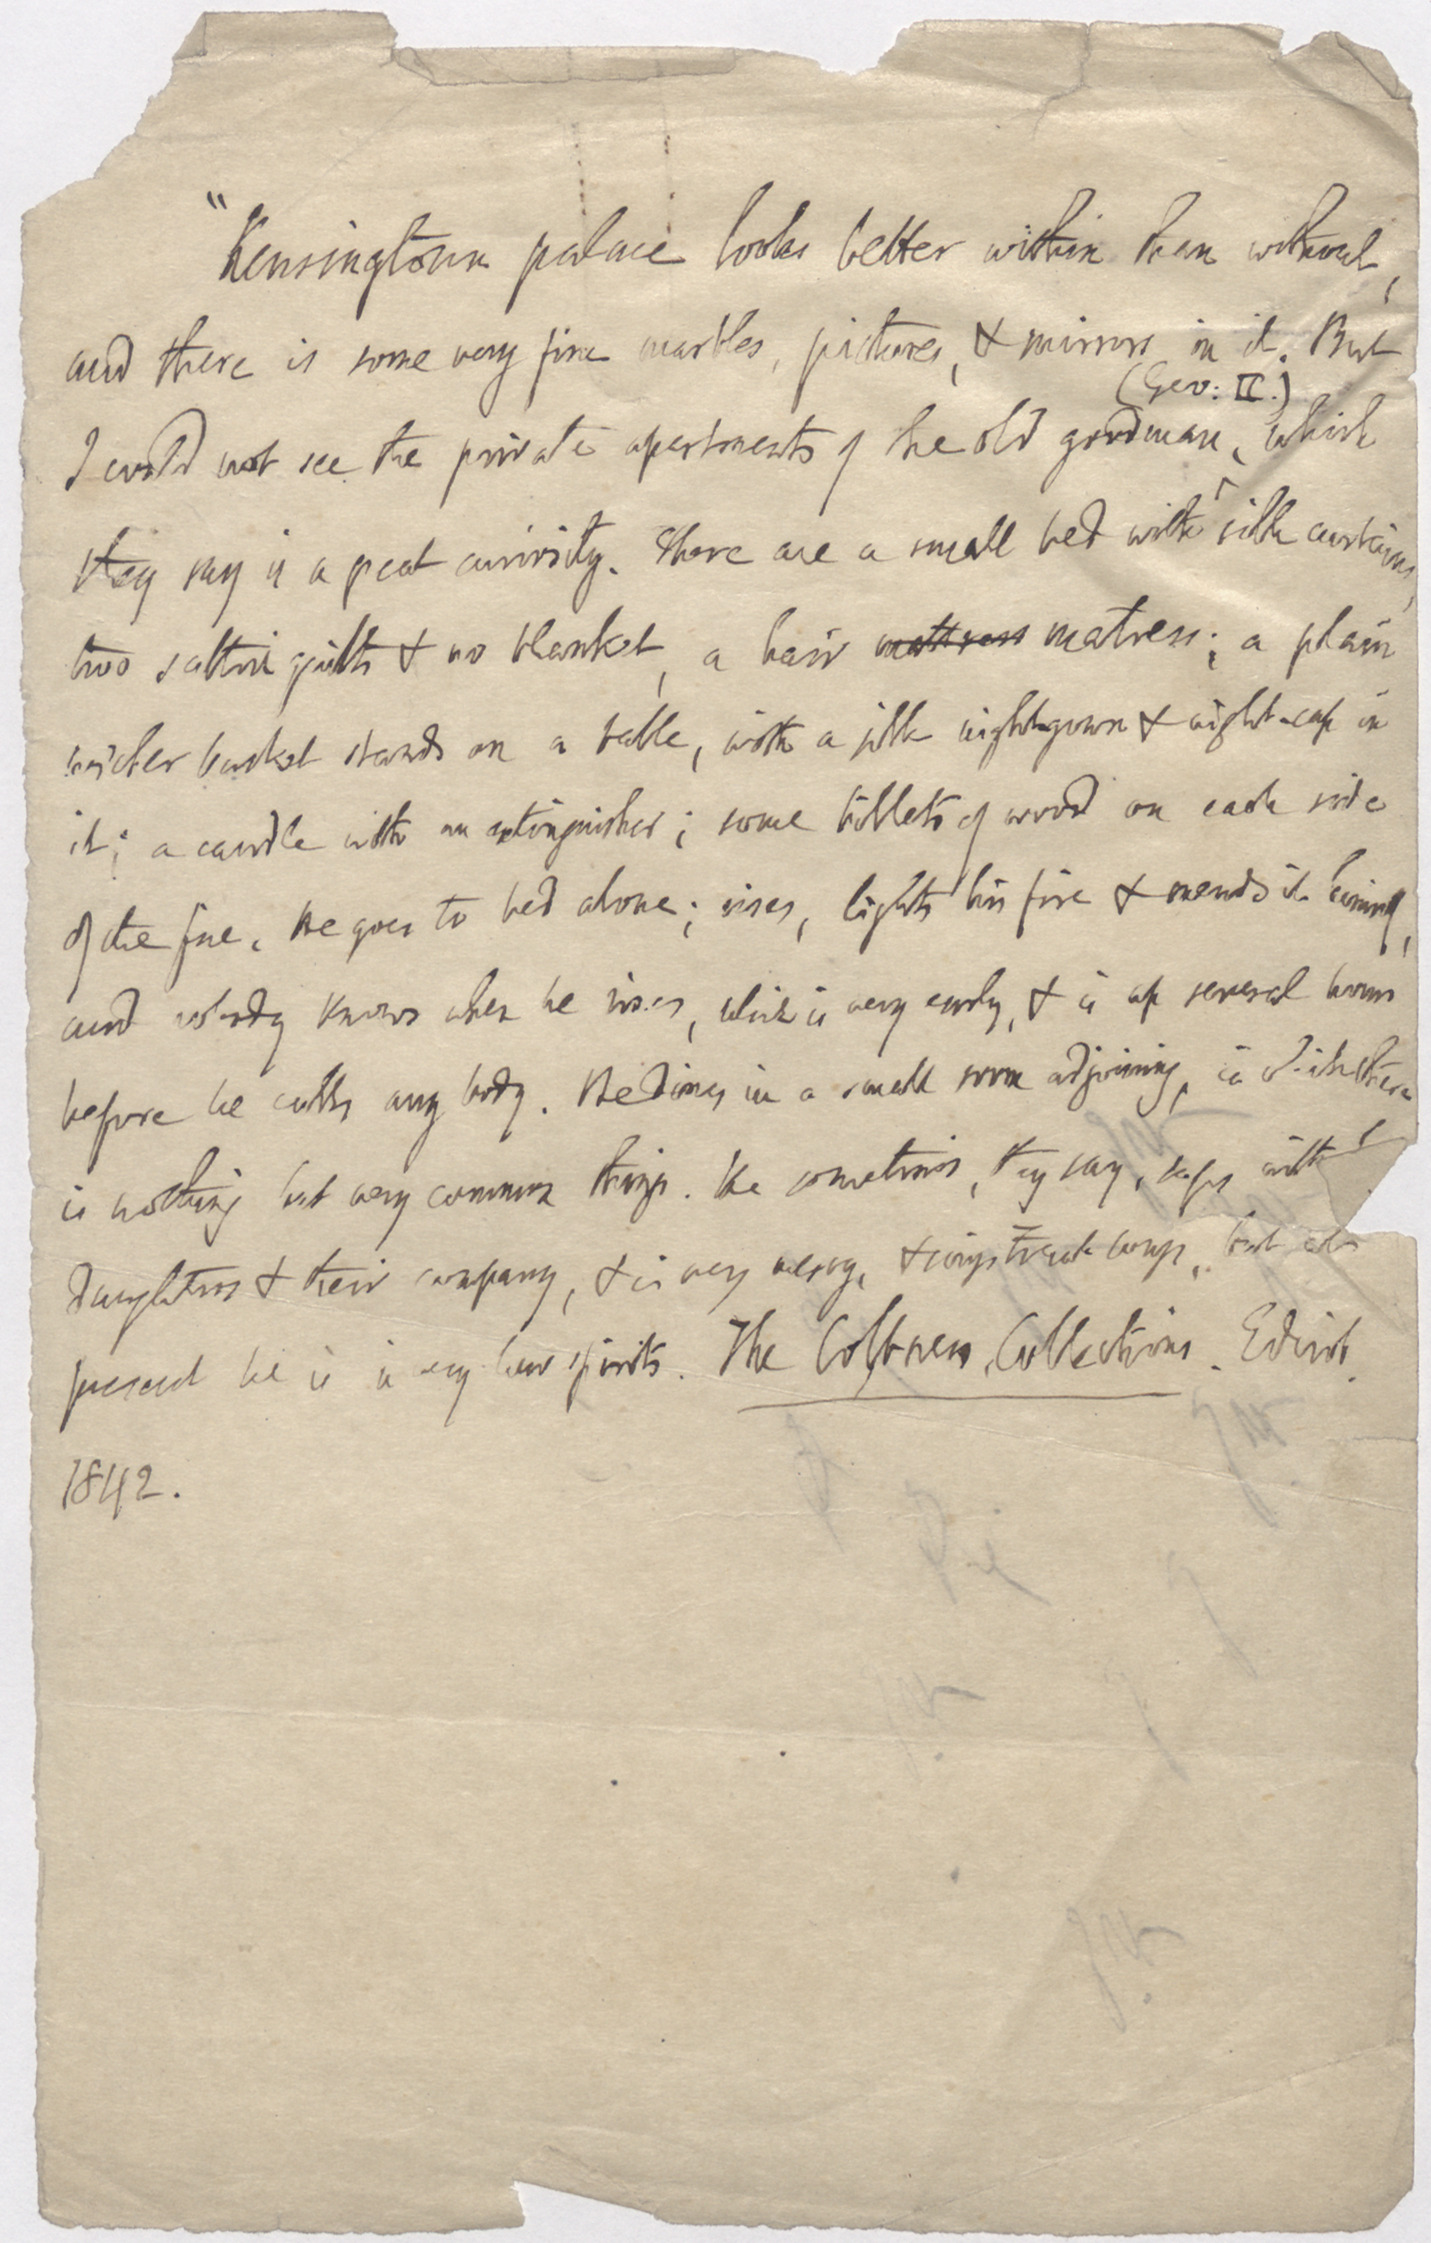 "Kensingtoun palace looks better within than without,
and there is some very fine marbles, pictures, & mirrors in it. But
(Geo: II.)
I could not see the private apartments of the old goodman, which
they say is a great curiosity. There are a small bed with silk curtains,
two sattin quilts & no blanket, a hair mattress matress; a plain
wicker basket stands on a table, with a silk night-gown & night-cap in
it; a candle with an extinguisher; some billets of wood on each side
of the fire. He goes to bed alone; rises, lights his fire & mends it himself,
and nobody knows when he rises, which is very early, & is up several hours
before he calls any body. He dines in a small room adjoining, in which there
is nothing but very common things. He sometimes, they say, sups with
daughters & their company, & is very merry, & sings French songs, but at
present he is in very low spirits. The Coltness Collections. Edinb.
1842.